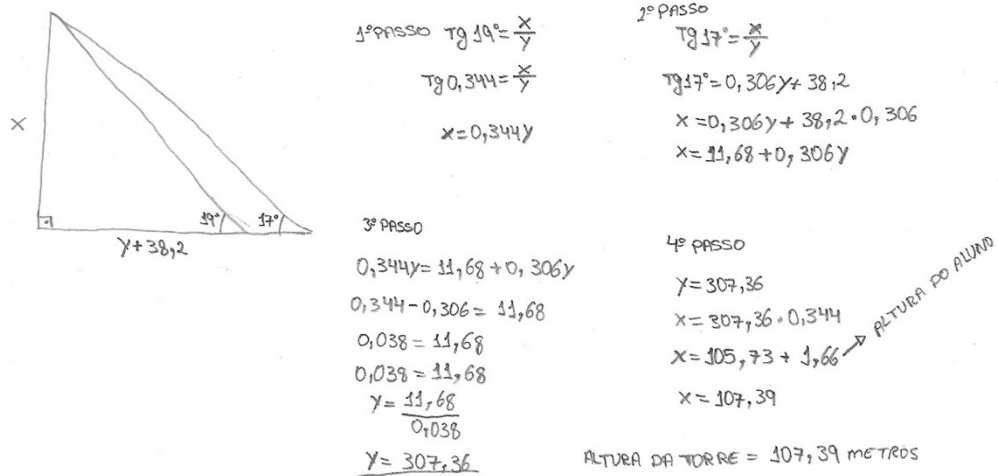 X
19°
17°
Y+38,2
1º PASSO Tg 19° = X/Y
Tg 0,344 = X/Y
X = 0,344Y
2º PASSO
Tg 17° = X/Y
Tg 17° = 0,306Y + 38,2
X = 0,306Y + 38,2 · 0,306
X = 11,68 + 0,306Y
3º PASSO
0,344Y = 11,68 + 0,306Y
0,344 - 0,306 = 11,68
0,038 = 11,68
0,038 = 11,68
Y = 11,68/0,038
Y = 307,36
4º PASSO
Y = 307,36
X = 307,36 · 0,344
X = 105,73 + 1,66 → ALTURA DO ALUNO
X = 107,39
ALTURA DA TORRE = 107,39 METROS